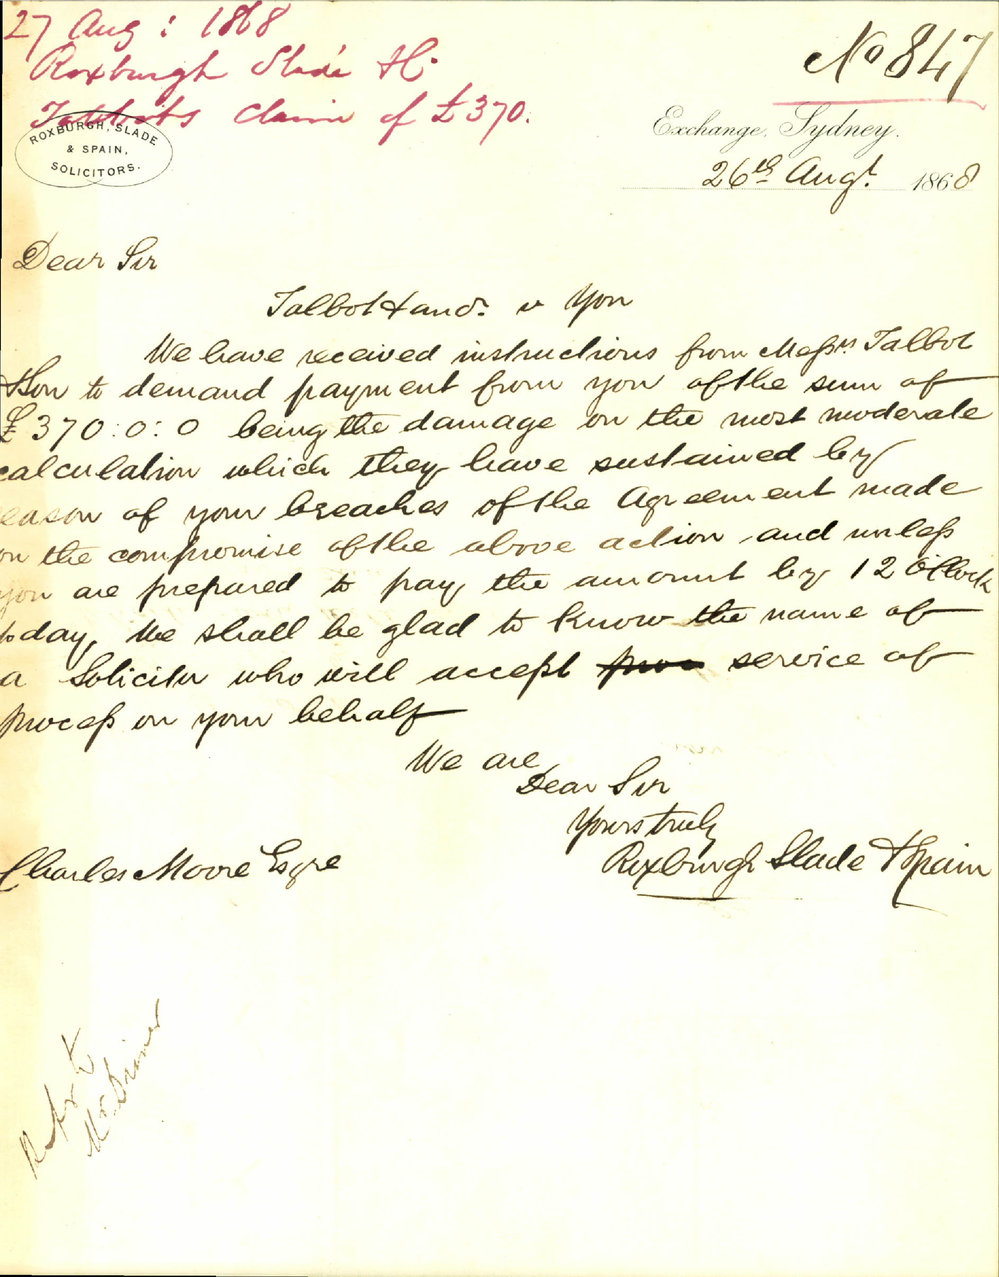 27 Aug: 1868
Roxburgh Slade &c
Talbots Claim of £370.
No 847
ROXBURGH, SLADE
& SPAIN,
SOLICITORS.
Exchange, Sydney.
26th Augt. 1868
Dear Sir
Talbot & anor. v You
We have received instructions from Messrs Talbot
& Son to demand payment from you of the sum of
£370:0:0 being the damage on the most moderate
calculation which they have sustained by
eason of your breaches of the Agreement made
on the compromise of the above action and unless
you are prepared to pay the amount by 12 O'Clock
today, We shall be glad to know the name of
a Solicitor who will accept service of
process on your behalf
We are
Dear Sir
Yours truly
Roxburgh Slade & Spain
Charles Moore Esqre
Mr.